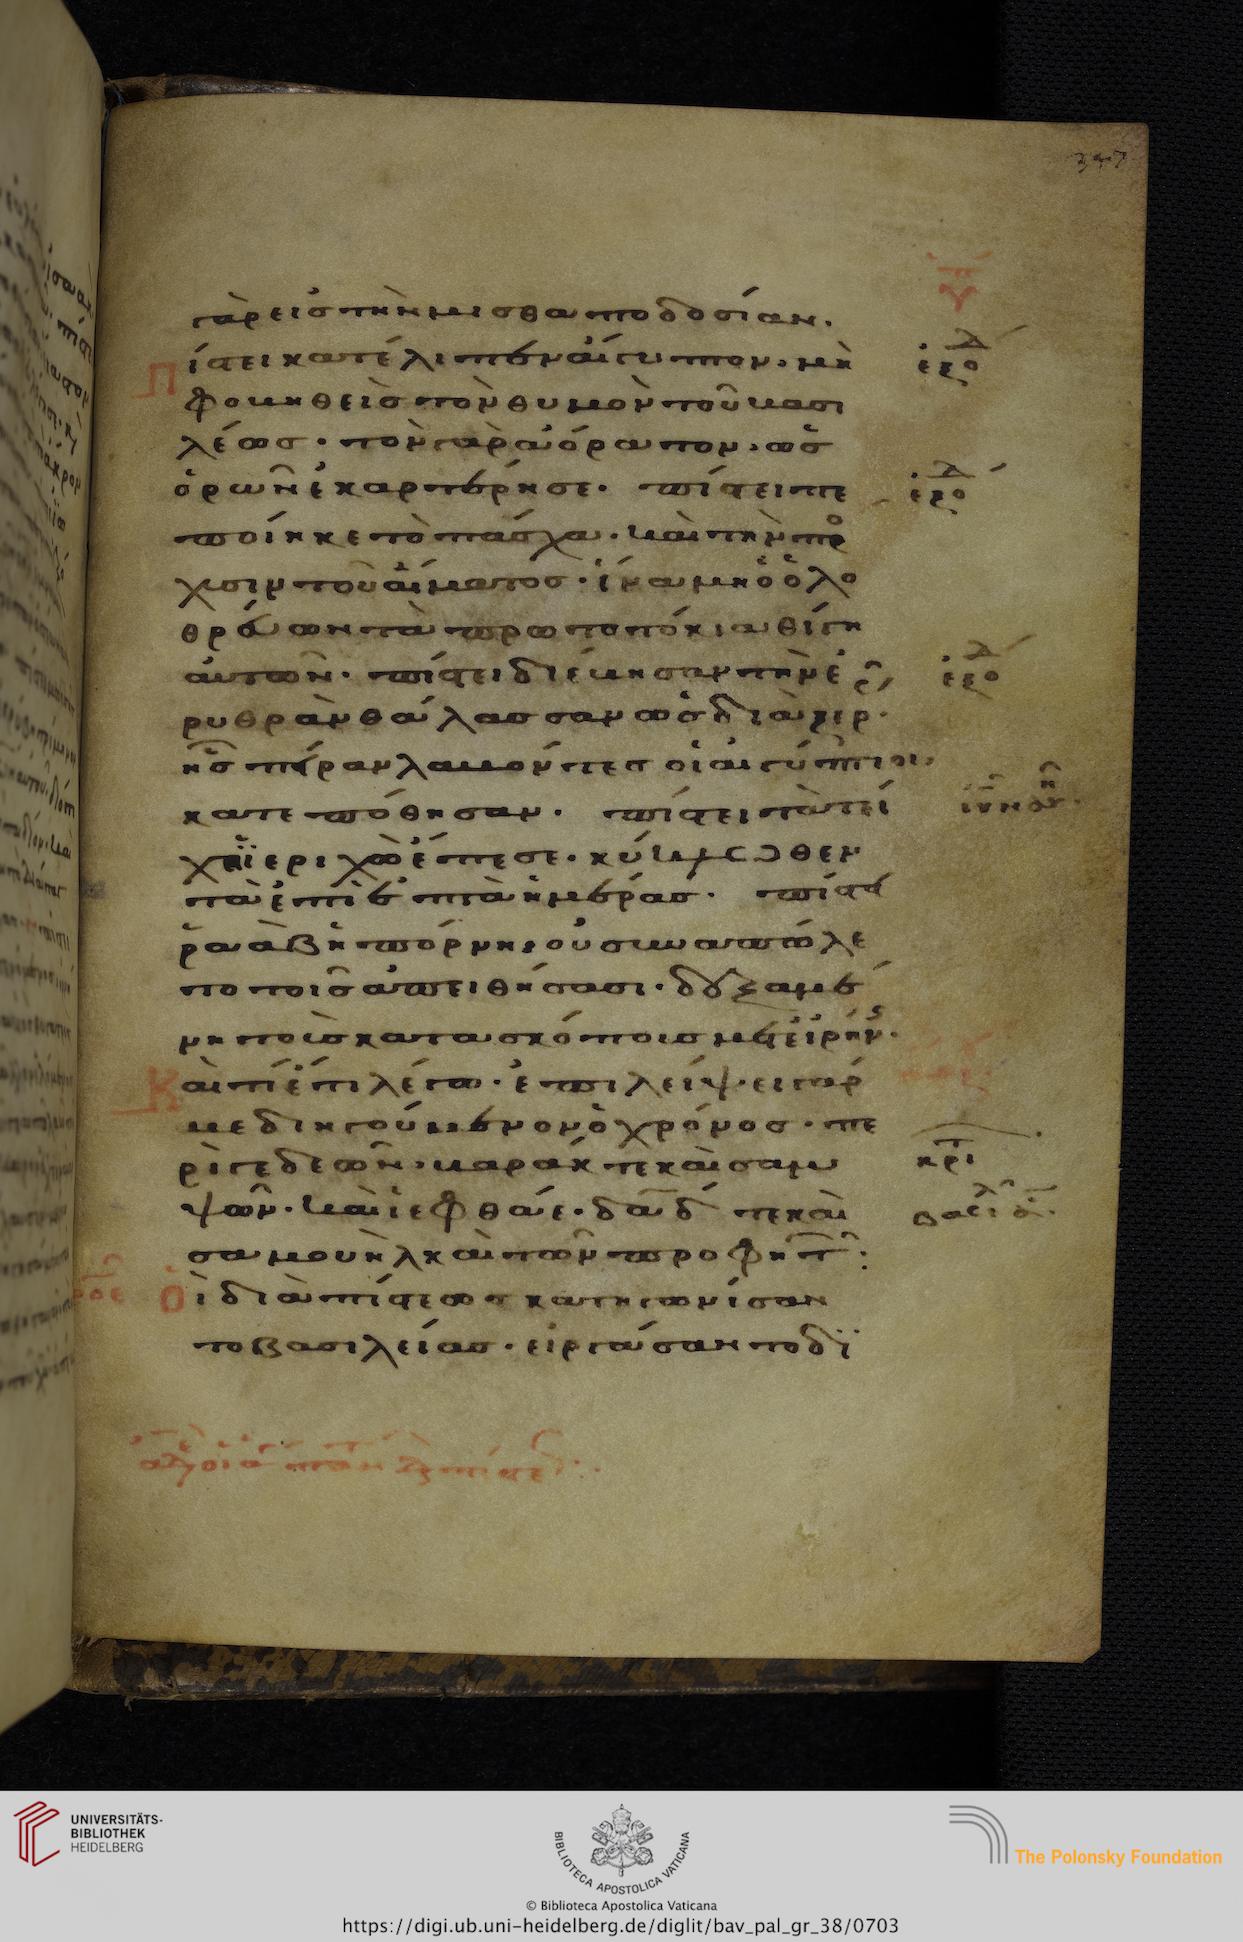 347
γὰρ εἰς τὴν μισθαποδοσίαν.
Πίστει κατέλιπεν αἴγυπτον, μὴ
φοβηθεὶς τὸν θυμὸν τοῦ βασι
λέως· τὸν γὰρ ἀόρατον, ὡς
ὁρῶν ἐκαρτέρησε· πίστει πε
ποίηκε τὸ πάσχα· καὶ τὴν πρό
χυσιν τοῦ αἵματος· ἵνα μὴ ὁ ὀλο
θρεύων τὰ πρωτοτόκια θίγη
αὐτῶν· πίστει διέβησαν τὴν ἐ
ρυθρὰν θάλασσαν ὡς διὰ ξηρ
ῆς πεῖραν λαβόντες οἱ αἰγύπτιοι,
κατεπόθησαν· πίστει τὰ τεί
χη ἱεριχὼ ἔπεσε· κυκλωθέν
τα ἐπὶ ἑπτὰ ἡμέρας· πίστει
ῥαὰβ ἡ πόρνη, οὐ συναπώλε
το τοῖς ἀπειθήσασι· δεξαμέ
νη τοὺς κατασκόπους μετ' εἰρήν
Καὶ τί ἔτι λέγω· ἐπιλείψει γάρ
με διηγούμενον ὁ χρόνος· πε
ρὶ γεδεών· βαράκ τε καὶ σαμ
ψών· καὶ ἰεφθάε· δαδ τε καὶ
σαμουὴλ καὶ τῶν προφητ:
Οἳ διὰ πίστεως κατηγωνίσαν
το βασιλείας· εἰργάσαντο δι
UNIVERSITÄTS-
BIBLIOTHEK
HEIDELBERG
BIBLIOTECA APOSTOLICA VATICANA
The Polonsky Foundation
© Biblioteca Apostolica Vaticana
https://digi.ub.uni-heidelberg.de/diglit/bav_pal_gr_38/0703